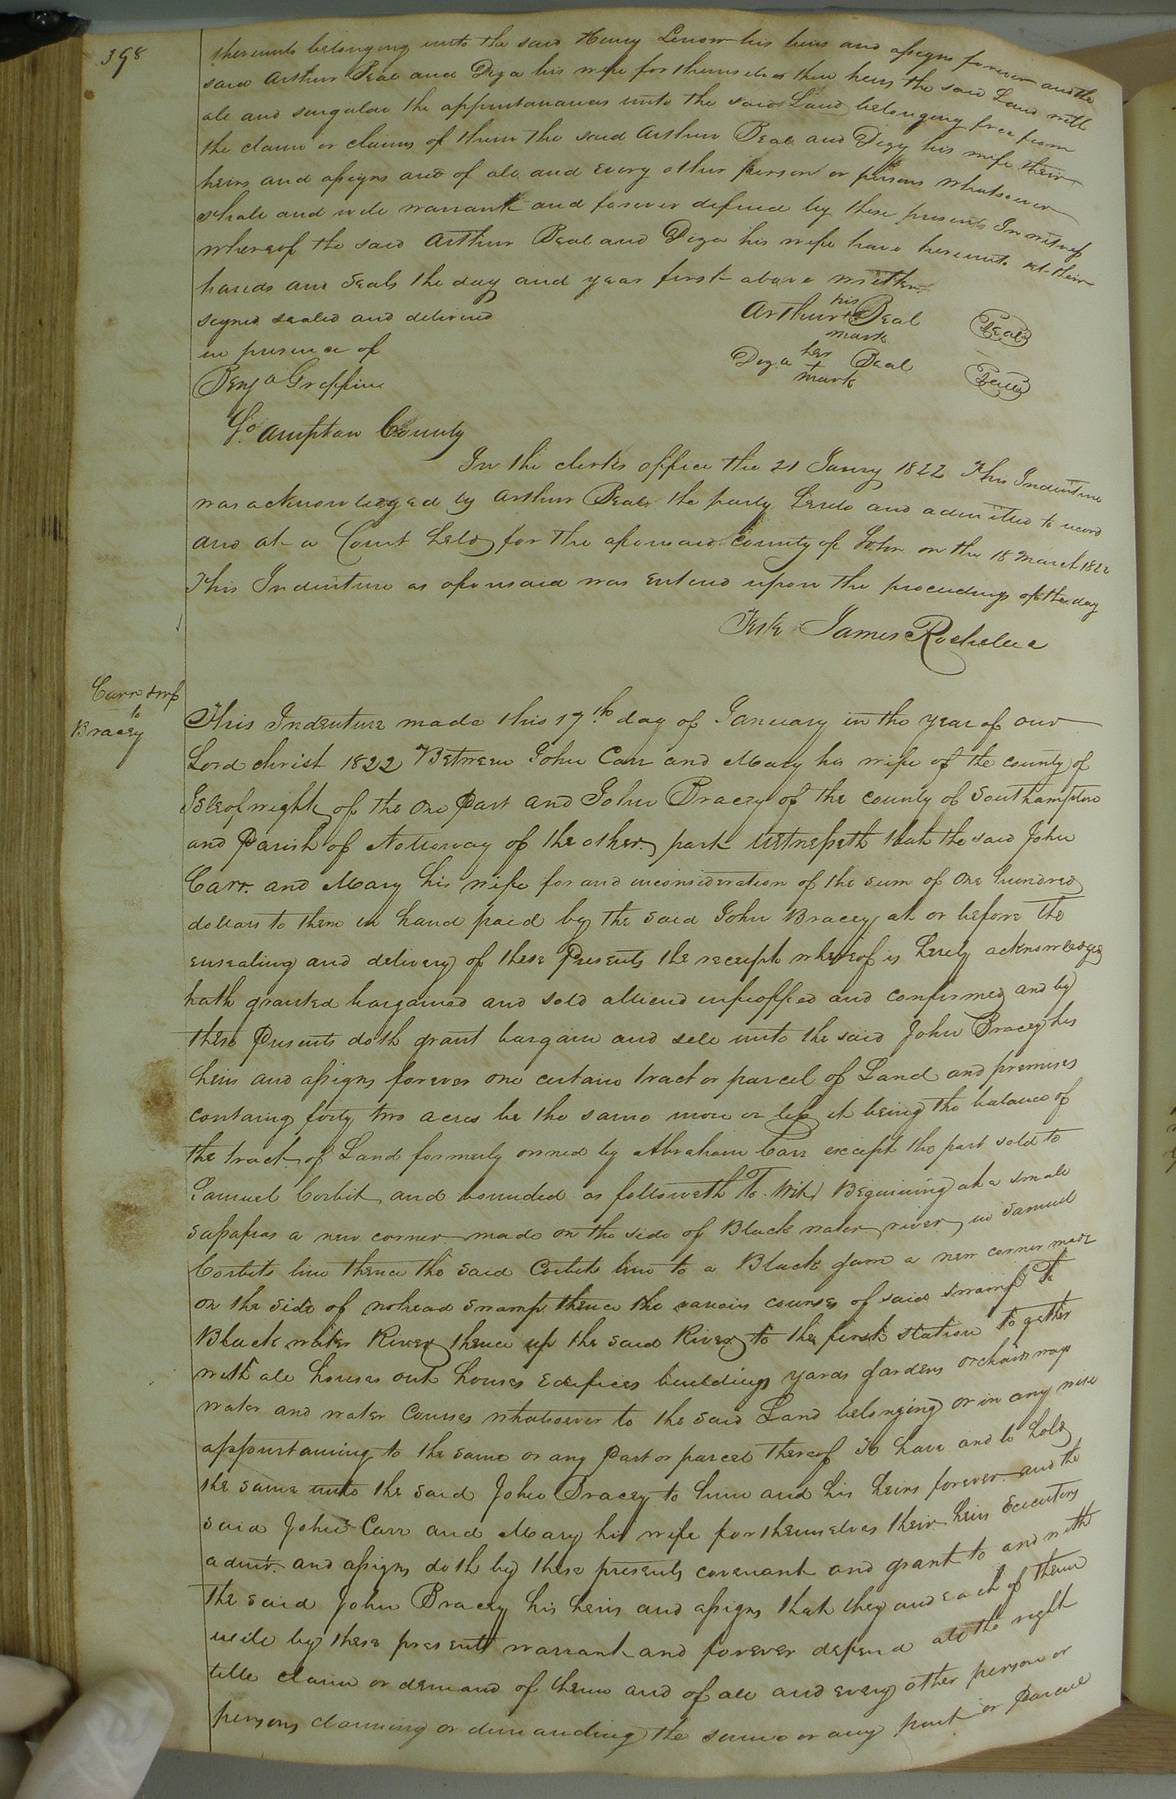 398
thereunto belonging unto the said Henry Lenow his heirs and assigns forever and the
said Arthur Beal and Diza his wife for themselves their heirs the said Land with
all and singular the appurtanances unto the said Land belonging free from
the claim or claims of them the said Arthur Beal and Dizy his wife their
heirs and assigns and of all and every other person or persons whatsoever
shall and will warrant and forever defend by these presents In witness
whereof the said Arthur Beal and Diza his wife have hereunto set their
hands and seals the day and year first above written
signed sealed and delivered
in presence of
Benja Griffin
Arthur his + mark Beal Seal
Diza her + mark Beal Seal
So ampton County
In the clerks office the 21 Jany 1822 This Indenture
was acknowledged by Arthur Beal the party hereto and admitted to record
and at a Court held for the aforesaid county of Sohn on the 18 March 1822
This Indenture as aforesaid was enterd upon the proceedings of the day
Teste James Rochelle
Carr &
to
Bracey
This Indenture made this 17th day of January in the year of our
Lord christ 1822 Between John Carr and Mary his wife of the county of
Isleofwight of the one Part and John Bracey of the county of Southampton
and Parish of Nottoway of the other part Witnesseth that the said John
Carr and Mary his wife for and inconsideration of the sum of one hundred
dollars to them in hand paid by the said John Bracey at or before the
ensealing and delivery of these Presents the receipt whereof is hereby acknowledged
hath granted bargained and sold aliend infeoffed and confirmed and by
these Presents doth grant bargain and sell unto the said John Bracey his
heirs and assigns forever one certain tract or parcel of Land and premises
containg forty two acres be the same more or less it being the balance of
the tract of Land formerly owned by Abraham Carr except the part sold to
Samuel Corbit and bounded as followeth To Wit Beginning at a small
sassafras a new corner made on the side of Black water river in Samuel
Corbits line thence the said Corbits line to a Black gum a new corner made
on the side of nohead swamp thence the various courses of said swamp to
Black water River thence up the said River to the first station together
with all houses out houses edifices buildings yards gardens orchards ways
water and water courses whatsoever to the said Land belonging or in any wise
appurtaining to the same or any Part or parcel thereof To have and to hold
the same unto the said John Bracey to him and his heirs forever and the
said John Carr and Mary his wife for themselves their heirs Executors
admr. and assigns doth by these presents covenant and grant to and with
the said John Bracey his heirs and assigns that they and each of them
will by these presents warrant and forever defend all the right
title claim or demand of them and of all and every other person or
persons claiming or demanding the same or any part or Parcel